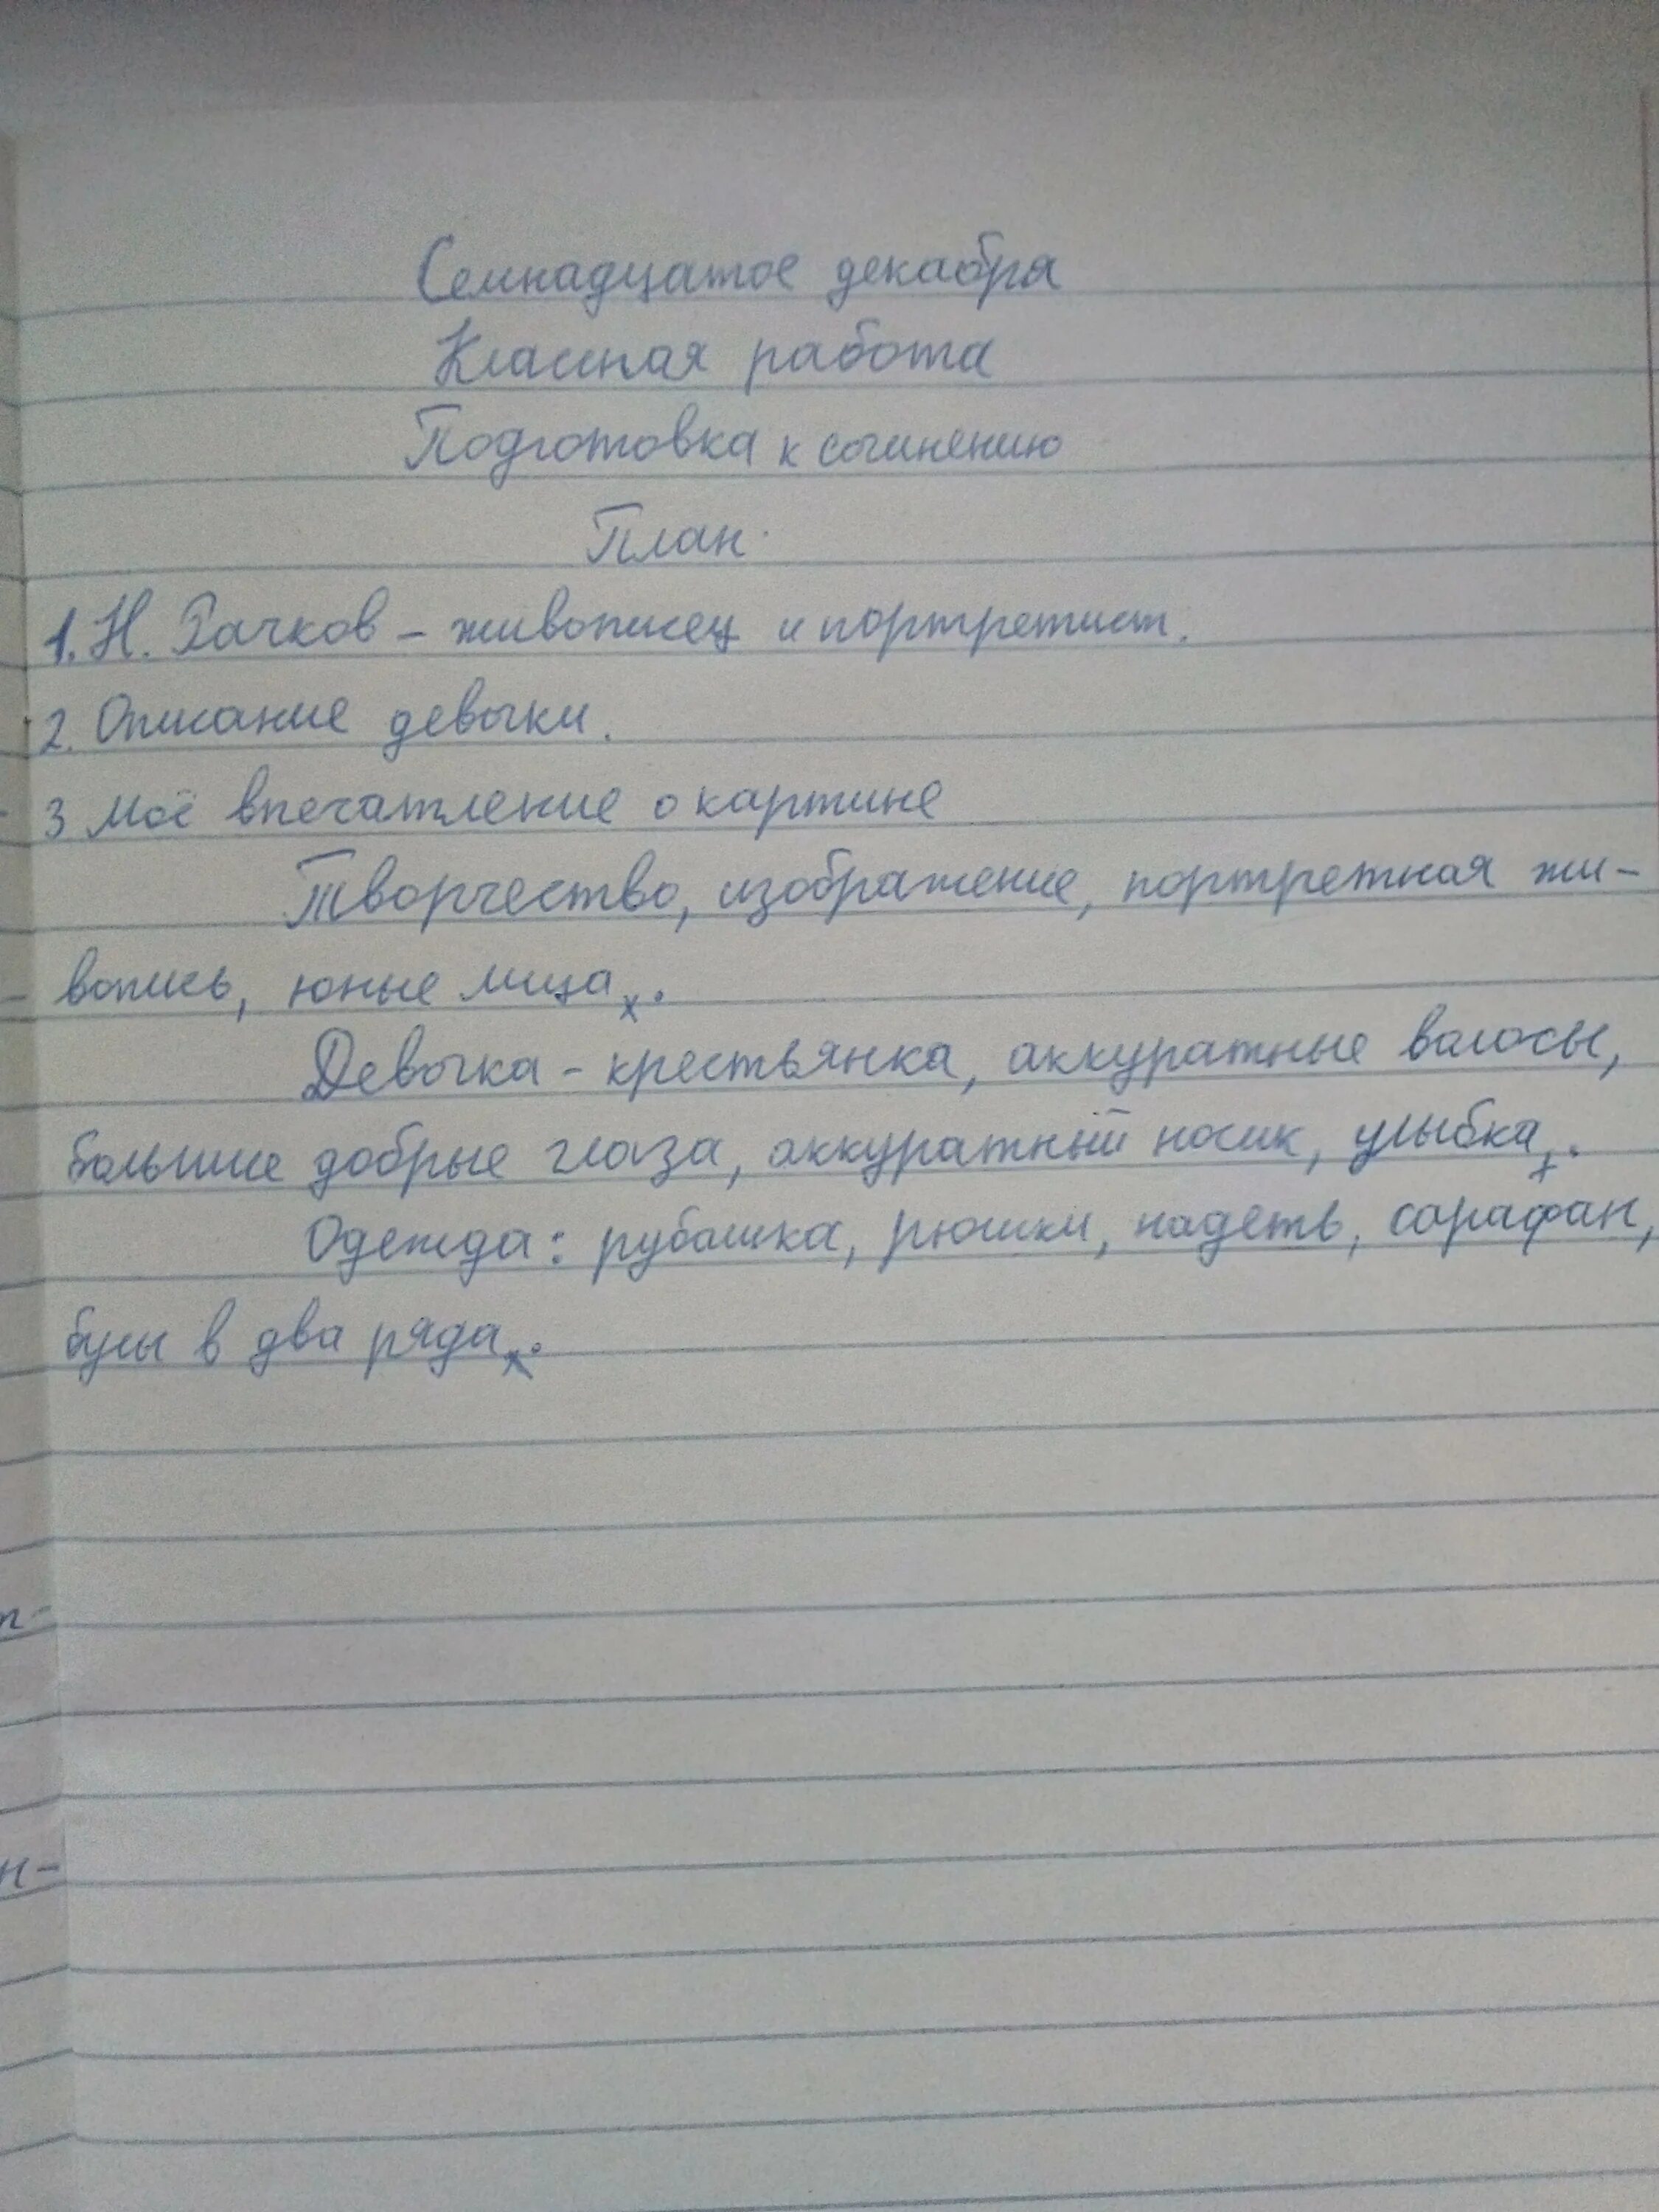 Семнадцатое декабря
Классная работа
Подготовка к сочинению
План.
1. Н. Рачков – живописец и портретист.
2. Описание девочки.
3 Моё впечатление о картине
Творчество, изображение, портретная жи-
вопись, юные лица.
Девочка – крестьянка, аккуратные волосы,
большие добрые глаза, аккуратный носик, улыбка.
Одежда: рубашка, рюшки, надеть, сарафан,
бусы в два ряда.
п-
н-